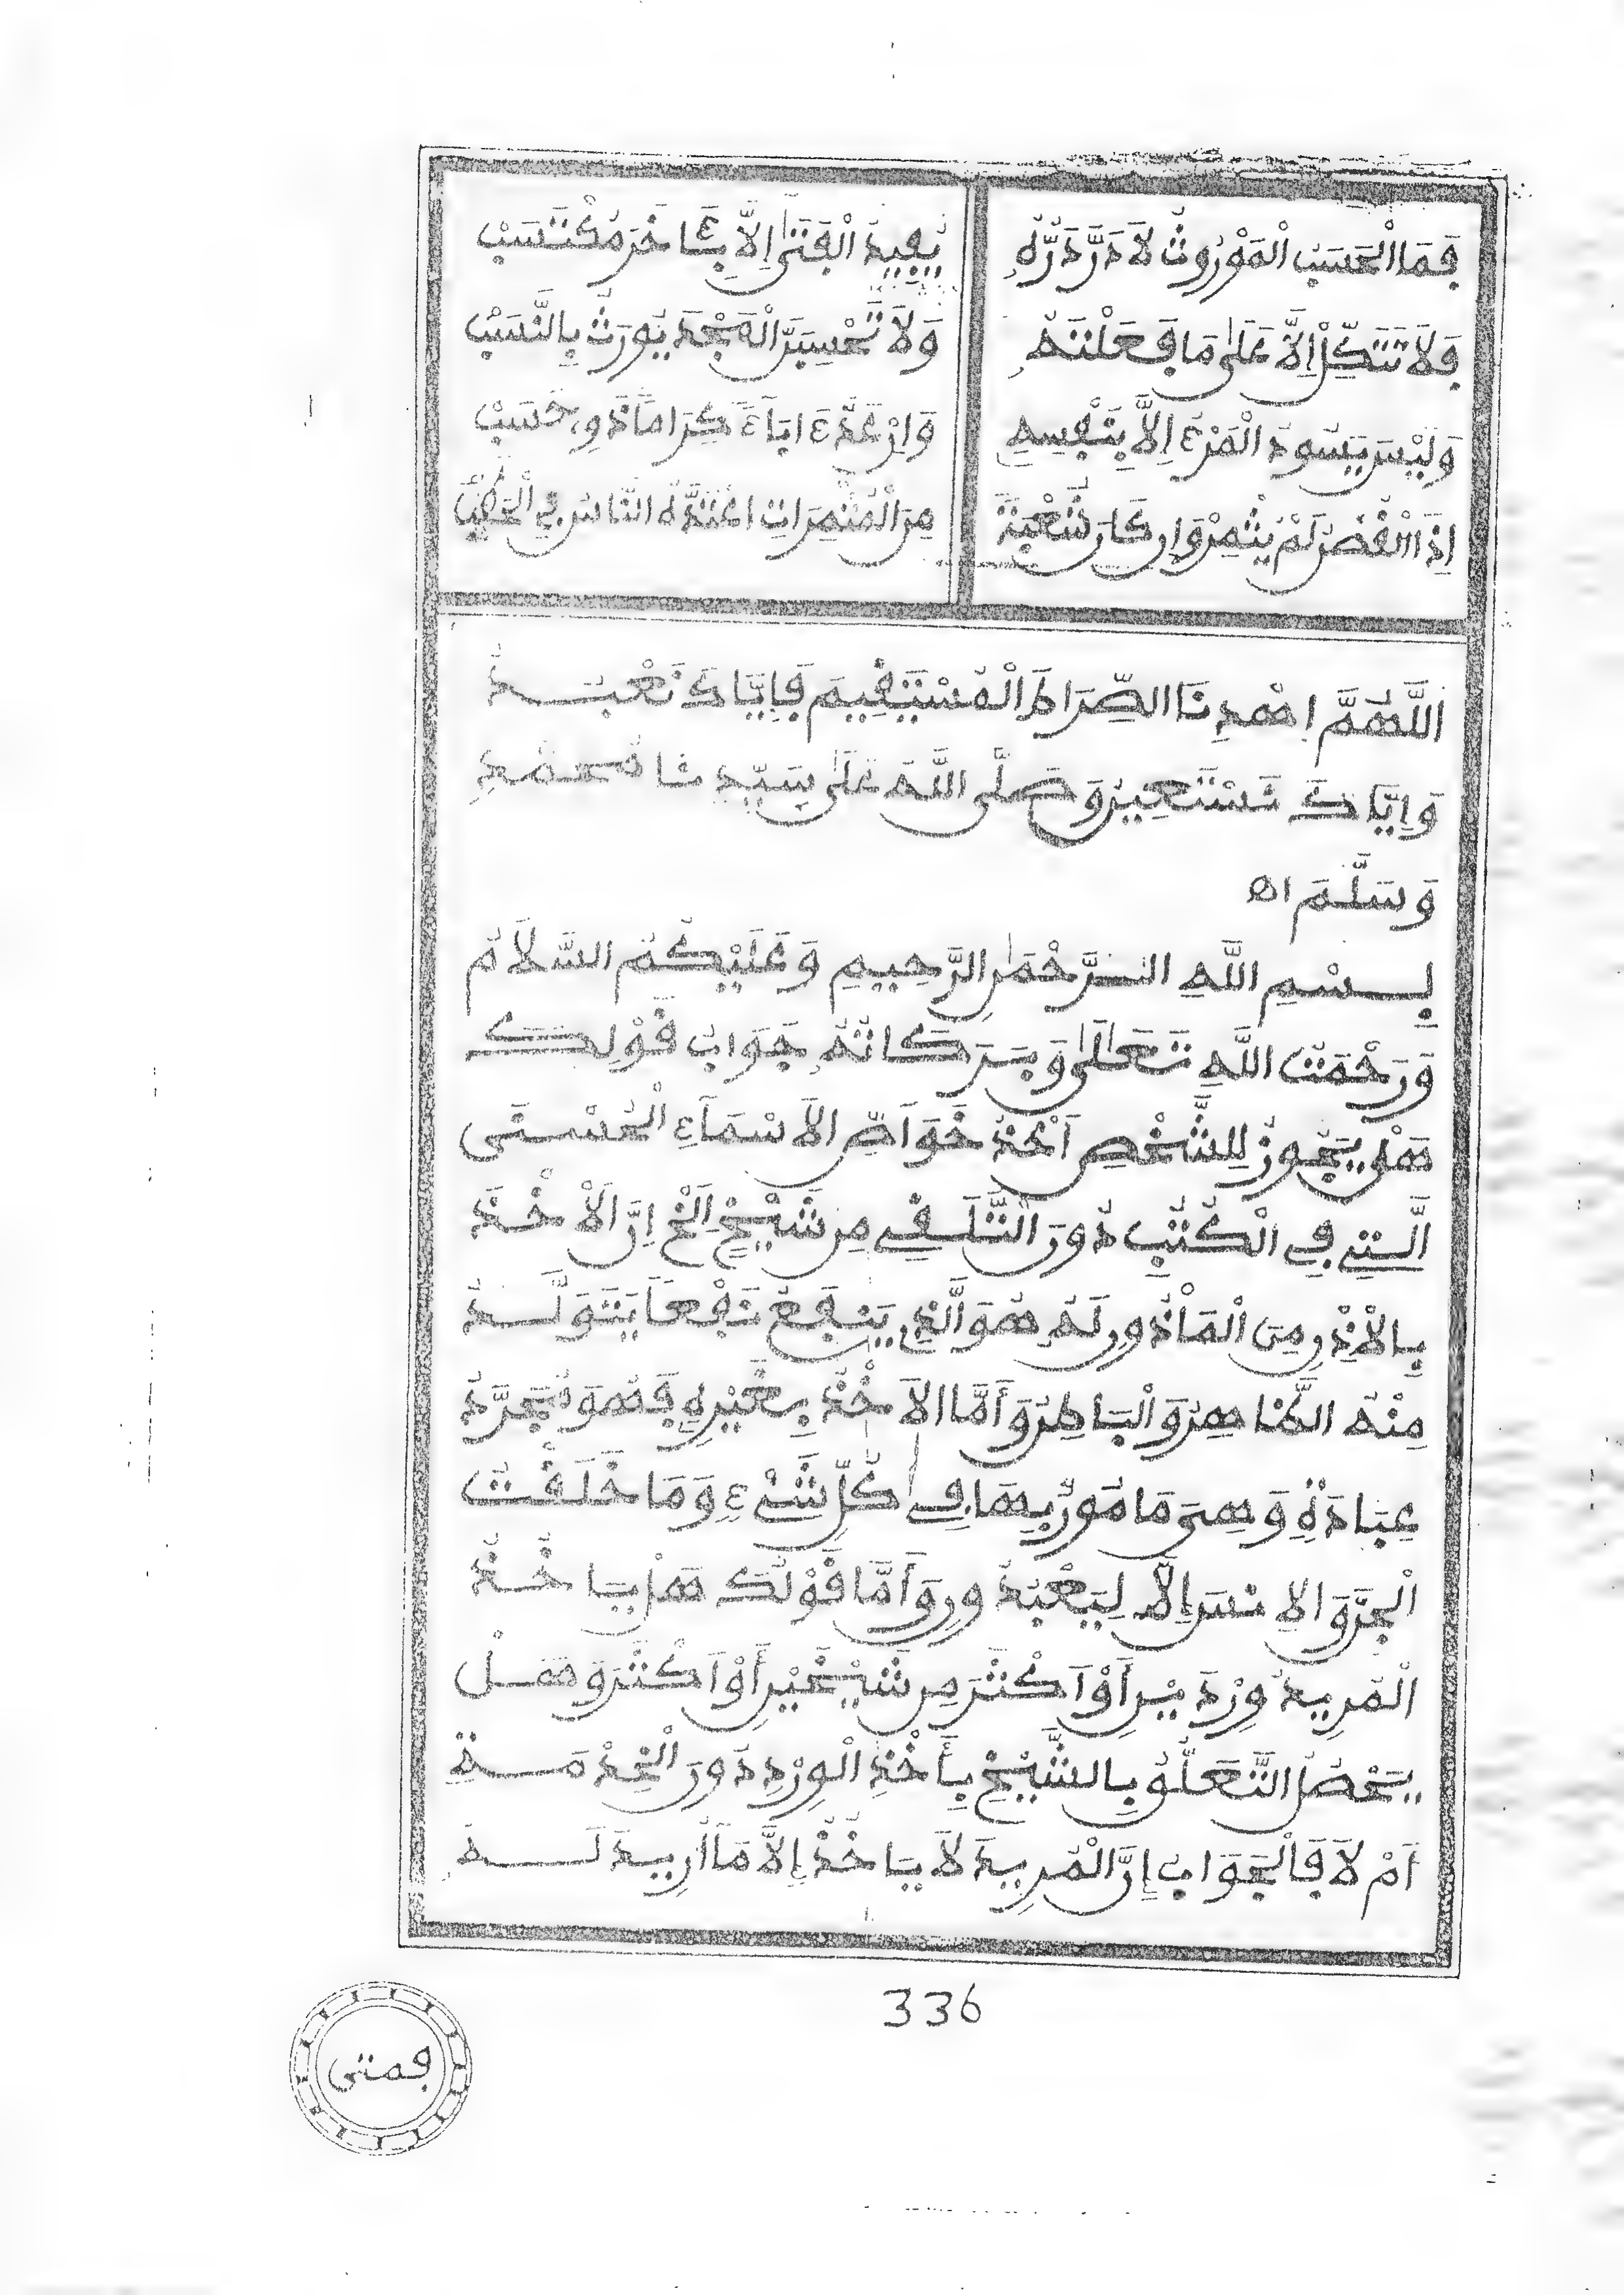 فَمَا الْحَسَبُ الْمَوْرُوثُ لاَ دَرَّ دَرُّهُ يُفِيدُ الْفَتَىٰ إِلاَّ بِـَٔاخَرَ مُكْتَسَبْ
فَلاَ تَتَّكِلْ إِلاَّ عَلَىٰ مَا فَعَلْتَهُ وَلاَ تَحْسِبَنَّ الْمَجْدَ يُورَثُ بِالنَّسَبْ
وَلَيْسَ يَسُودُ الْمَرْءُ إِلاَّ بِنَفْسِهِ وَإِنْ عَدَّ ءَابَاءً كِرَامًا ذَوِي حَسَبْ
إِذَا الْغُصْنُ لَمْ يُثْمِرْ وَإِن كَانَ شُعْبَةً مِنَ الْمُثْمِرَاتِ اعْتَدَّهُ النَّاسُ فِي الْحَطَبْ
اللَّهُمَّ اهْدِنَا الصِّرَاطَ الْمُسْتَقِيمَ فَإِيَّاكَ نَعْبُدُ
وَإِيَّاكَ نَسْتَعِينُ وَصَلَّى اللَّهُ عَلَىٰ سَيِّدِنَا مُحَمَّدٍ
وَسَلَّمَ اه
بِسْمِ اللَّهِ الرَّحْمَٰنِ الرَّحِيمِ وَعَلَيْكُمُ السَّلاَمُ
وَرَحْمَتُ اللَّهِ تَعَالَىٰ وَبَرَكَاتُهُ جَوَابُ قَوْلِكَ
هَلْ يَجُوزُ لِلشَّخْصِ أَخْذُ خَوَاصِّ الاَسْمَاءِ الْحُسْنَى
الَّتِي فِي الْكُتُبِ دُونَ التَّلَقِّي مِن شَيْخٍ الَخْ إِنَّ الاَخْذَ
بِالاِذْنِ مِنَ الْمَأْذُونِ لَهُ هُوَ الَّذِي يَنفَعُ نَفْعًا يَتَوَلَّدُ
مِنْهُ الظَّاهِرُ وَالْبَاطِنُ وَأَمَّا الاَخْذُ بِغَيْرِهِ فَهُوَ مُجَرَّدُ
عِبَادَةٍ وَهِيَ مَامُورٌ بِهَا فِي كُلِّ شَيْءٍ وَمَا خَلَقْتُ
الْجِنَّ وَالاِنسَ إِلاَّ لِيَعْبُدُونِ وَأَمَّا قَوْلُكَ هَلْ يَاخُذُ
الْمُرِيدُ وِرْدَيْنِ أَوْ أَكْثَرَ مِن شَيْخَيْنِ أَوْ أَكْثَرَ وَهَلْ
يَحْصُلُ التَّعَلُّقُ بِالشَّيْخِ بِأَخْذِ الْوِرْدِ دُونَ الْخِدْمَةِ
أَمْ لاَ فَالْجَوَابُ إِنَّ الْمُرِيدَ لاَ يَاخُذُ إِلاَّ مَا أُرِيدَ لَهُ
336
فمتى